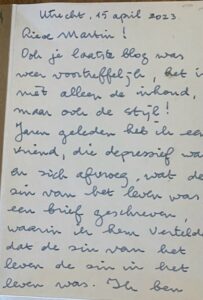 Utrecht, 15 april 2023.
Lieve Martin!
Ook je laatste blog was
weer voortreffelijk, het i
niet alleen de inhoud,
maar ook de stijl!
Jaren geleden heb ik een
vriend, die depressief wa
en zich afvroeg, wat de
zin van het leven was
een brief geschreven,
waarin ik hem vertelde
dat de zin van het
leven de zin in het
leven was. Ik ben